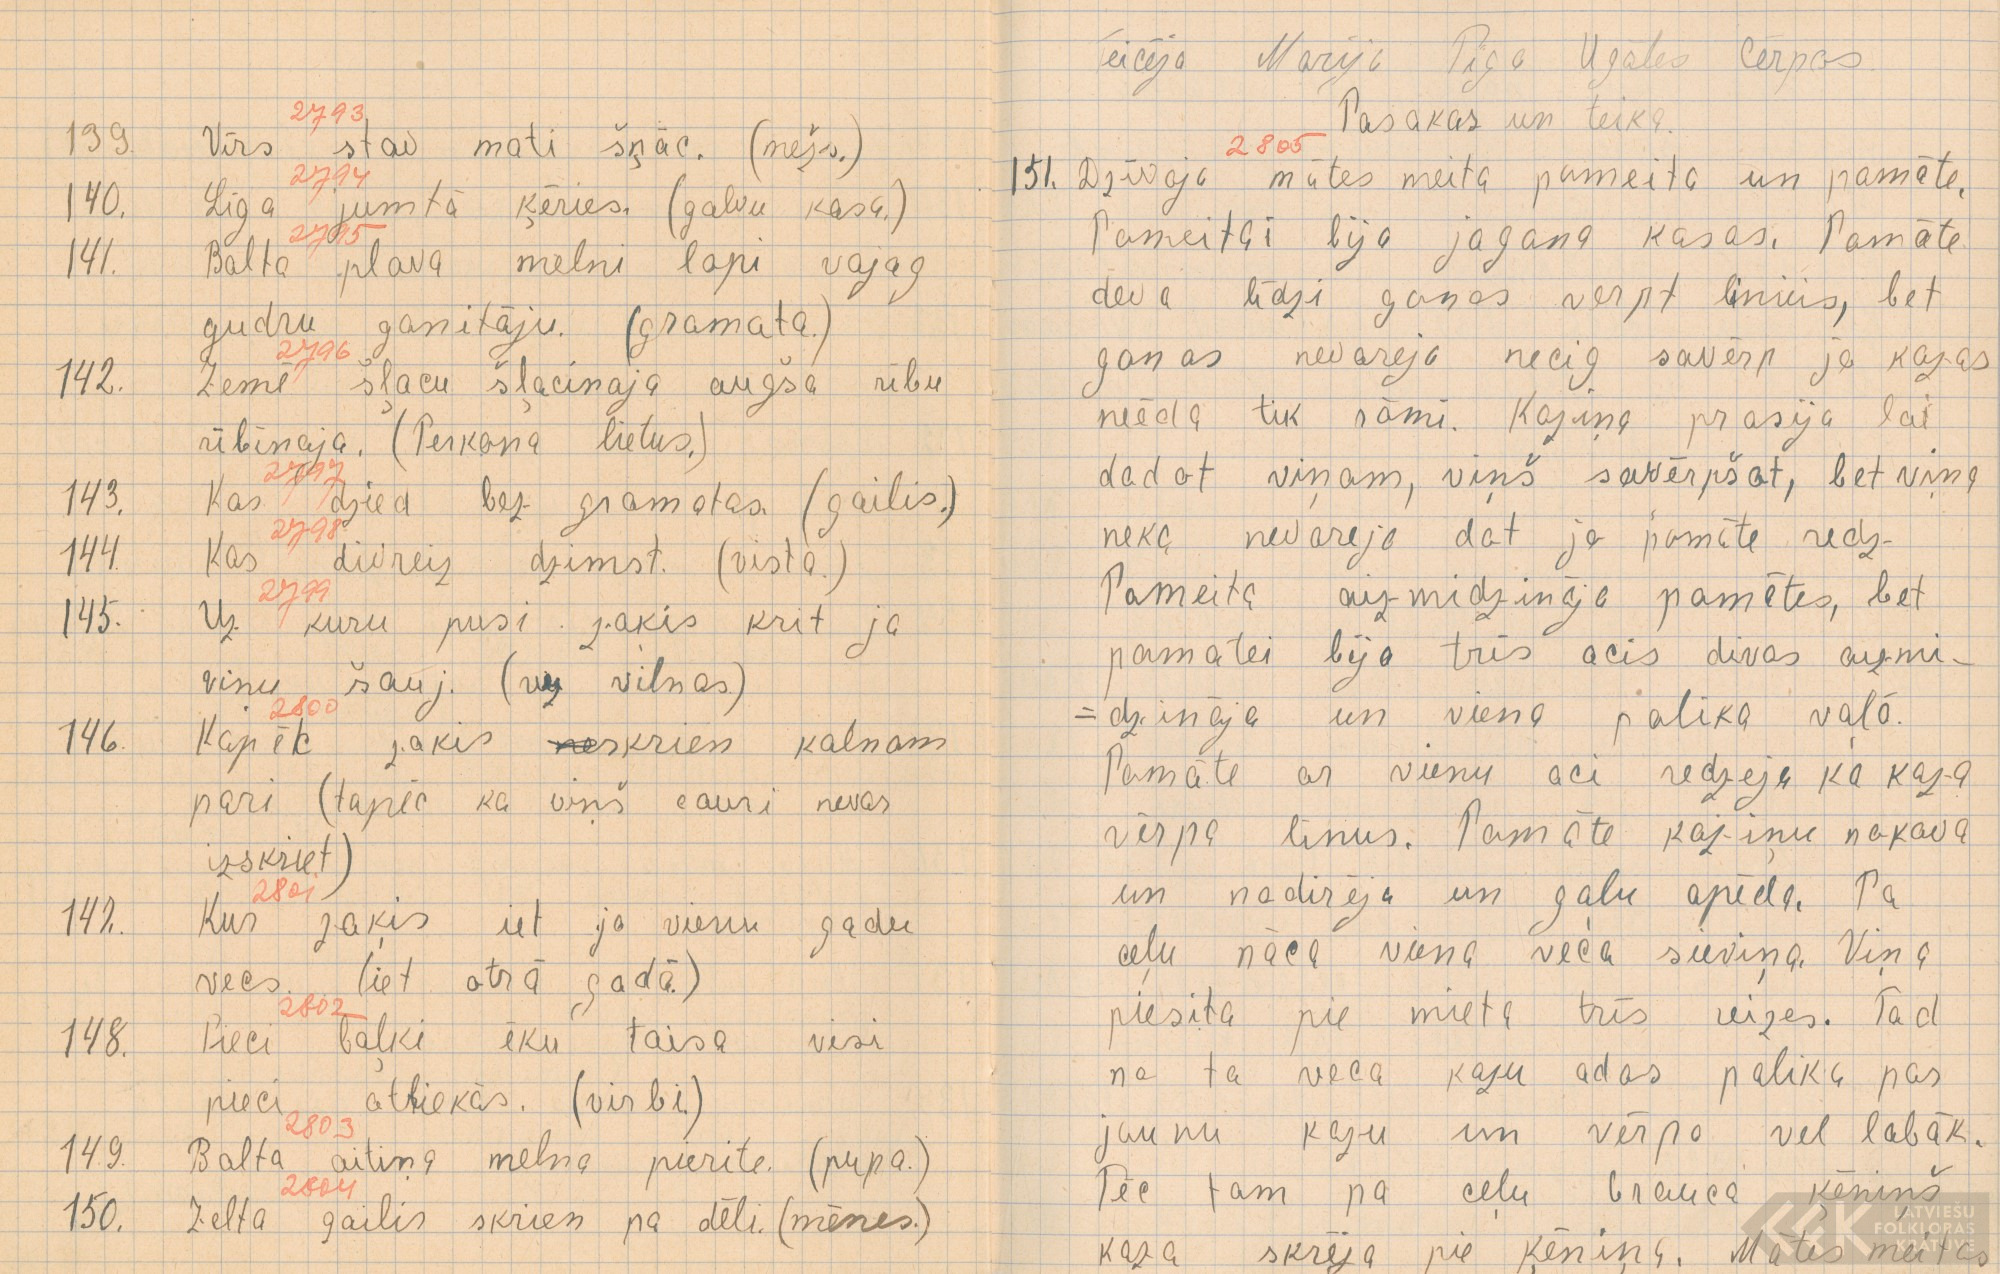 2793
139. Vīrs stav mati šņāc. (mežs.)
2794
140. Liga jumtā ķēries. (galvu kasa.)
2795
141. Balta plava melni lopi vajag
gudru ganitāju. (gramata.)
2796
142. Zemē šļacu šļacinaja augša rību
rībinaja. (Perkona lietus.)
2797
143. Kas dzied bez gramatas. (gailis.)
2798
144. Kas divreiz dzimst. (vista.)
2799
145. Uz kuru pusi zaķis krit ja
viņu šauj. (uz vilnas)
2800
146. Kapēc zakis neskrien kalnam
pari (tapēc ka viņš cauri nevar
izskriet)
2801
147. Kur zaķis iet ja vienu gadu
vecs. (iet otrā gadā.)
2802
148. Pieci baļķi ēku taisa visi
pieci atliekās. (virbi.)
2803
149. Balta aitiņa melna pierite. (pupa.)
2804
150. Zelta gailis skrien pa dēli. (mēnes.)
Teicēja Marija Pīga Ugāles Cērpas
Pasakas un teika.
2805
151. Dzīvoja mātes meita pameita un pamāte.
Pameitai bija jagana kasas. Pamāte
deva līdzi ganos verpt linius, bet
ganos nevareja necig savērp ja kazas
neēda tik rāmi. Kaziņa prasija lai
dadot viņam, viņš savērpšot, bet viņa
neka nevareja dot jo pamāte redz-
Pameita aizmidzināja pamātes, bet
pamatei bija trīs acis divas aizmi-
=dzināja un viena palika vaļā.
Pamāte ar vienu aci redzeja ka kaza
vērpa linus. Pamāte kaziņu nokava
un nodirēja un gaļu apēda. Pa
ceļu nāca viena veca sieviņa. Viņa
piesita pie mieta trīs reizes. Tad
no ta veca kazu adas palika par
jaunu kazu un vērpa vel labāk.
Pēc tam pa ceļu brauca ķēninš
kaza skrēja pie ķēniņa. Mātes meitas
LATVIEŠU
FOLKLORAS
KRĀTUVE